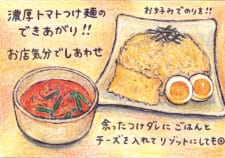 濃厚トマトつけ麺の
できあがり!!
お店気分でしあわせ
お好みでのりを!!
余ったつけダレに ごはんと
チーズを入れて リゾットにしても◎